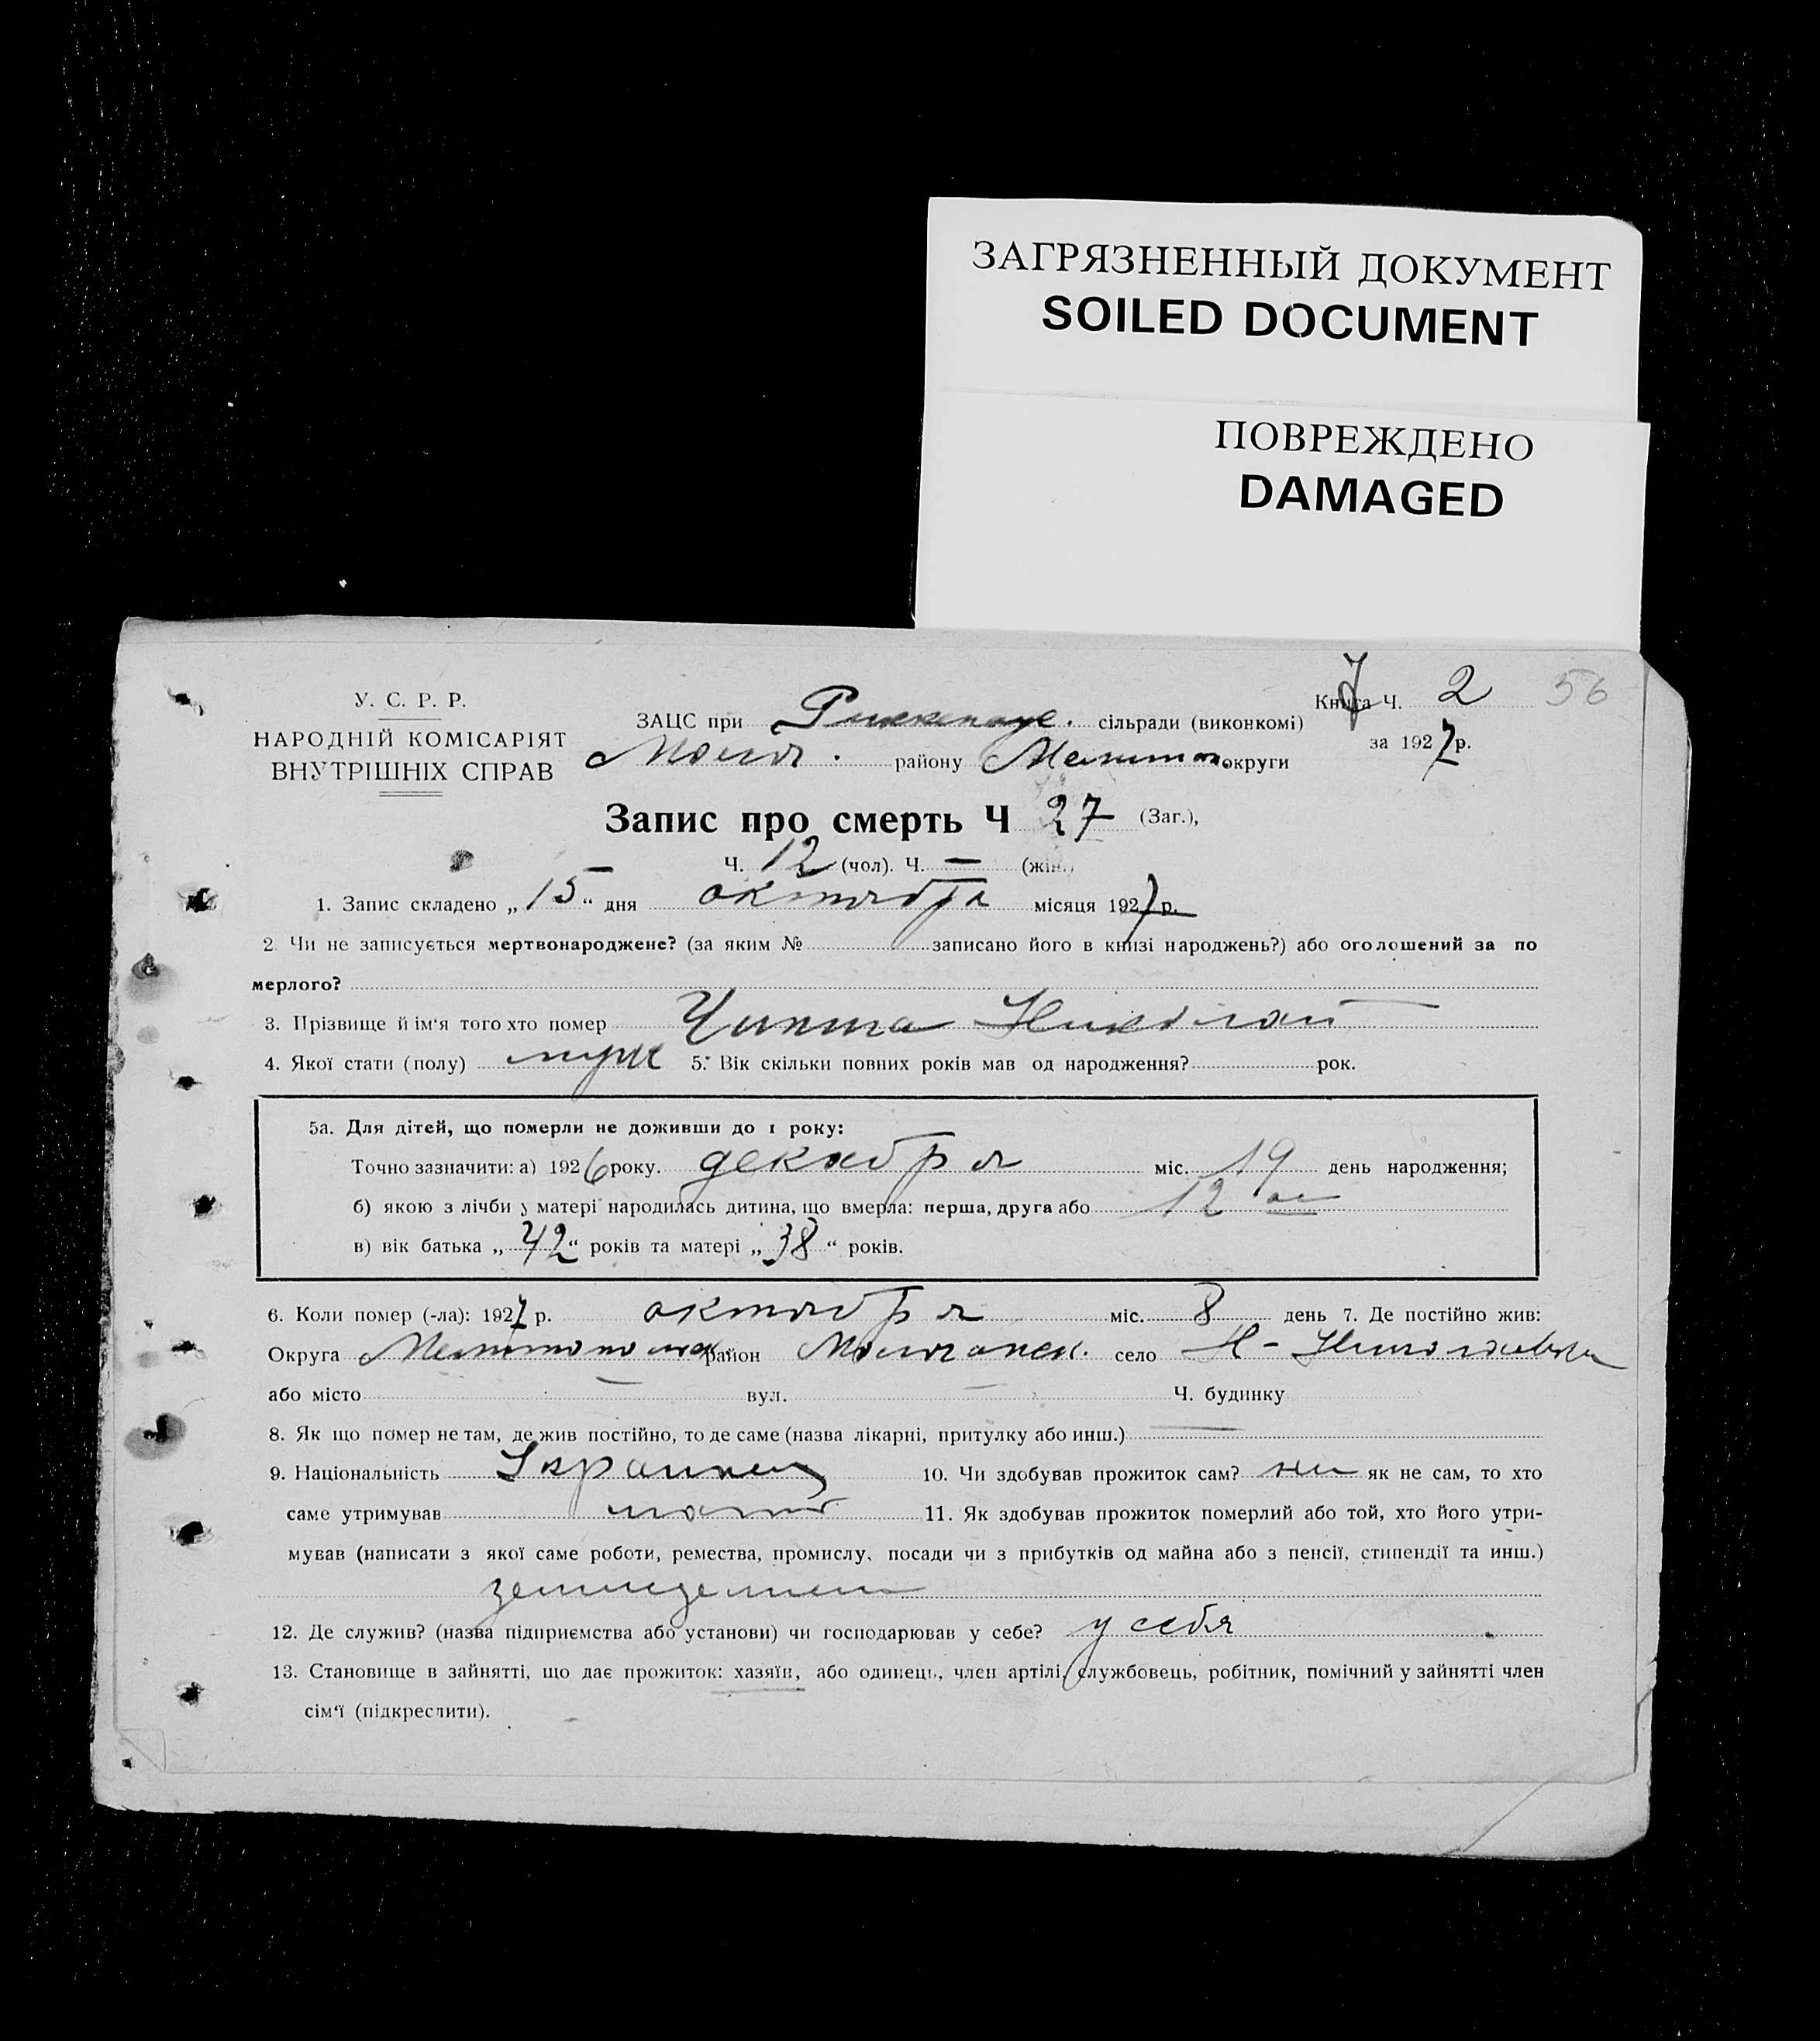 ЗАГРЯЗНЕННЫЙ ДОКУМЕНТ
SOILED DOCUMENT
ПОВРЕЖДЕНО
DAMAGED
У. С. Р. Р.
НАРОДНІЙ КОМІСАРІЯТ
ВНУТРІШНІХ СПРАВ
Книга Ч. 2 56
за 1927 р.
ЗАЦС при сільради (виконкомі)
району округи
Запис про смерть Ч 27 (Заг.),
Ч. 12 (чол). Ч. — (жін.)
1. Запис складено „15“ дня октября місяця 1927 р.
2. Чи не записується мертвонароджене? (за яким № записано його в книзі народжень?) або оголошений за по
мерлого?
3. Прізвище й ім'я того хто помер Николай
4. Якої стати (полу) муж 5. Вік скільки повних років мав од народження? рок.
5а. Для дітей, що померли не доживши до 1 року:
Точно зазначити: а) 1926 року. декабря міс. 19 день народження;
б) якою з лічби у матері народилась дитина, що вмерла: перша, друга або 12
в) вік батька „42“ років та матері „38“ років.
6. Коли помер (-ла): 1927 р. октября міс. 8 день 7. Де постійно жив:
Округа район село Н-Николаевка
або місто — вул. — Ч. будинку
8. Як що помер не там, де жив постійно, то де саме (назва лікарні, притулку або инш.) —
9. Національність Украинец 10. Чи здобував прожиток сам? як не сам, то хто
саме утримував 11. Як здобував прожиток померлий або той, хто його утри-
мував (написати з якої саме роботи, ремества, промислу, посади чи з прибутків од майна або з пенсії, стипендії та инш.)
12. Де служив? (назва підприємства або установи) чи господарював у себе? у себя
13. Становище в зайнятті, що дає прожиток: хазяїн, або одинець, член артілі, службовець, робітник, помічний у зайнятті член
сім'ї (підкреслити).